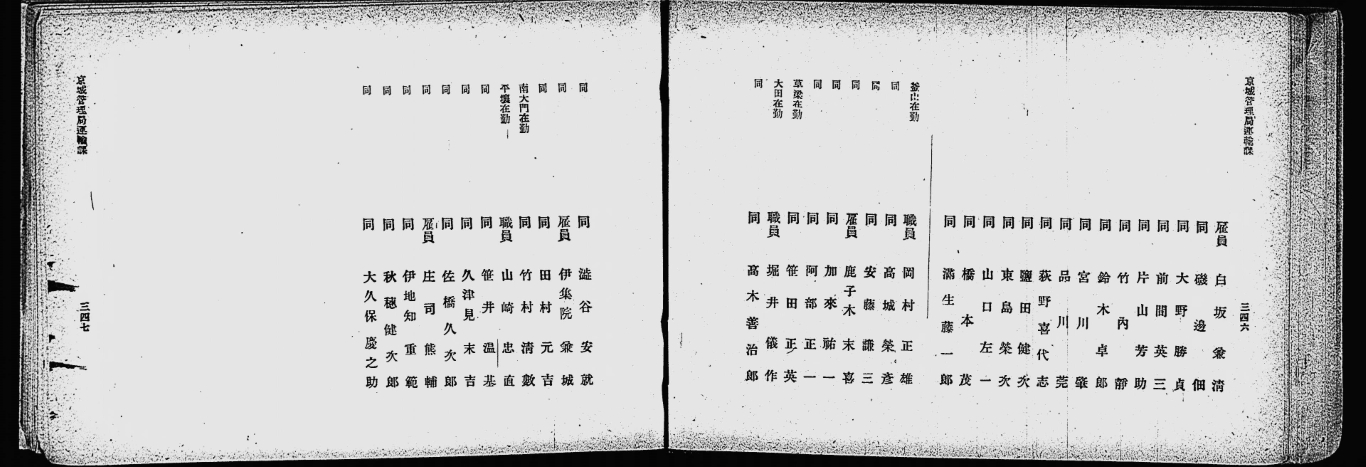 京城管理局運輸課
三四六
雇員 白坂兼淸
同 磯邊佃
同 大野勝貞
同 前間英三
同 片山芳助
同 竹內靜
同 鈴木卓郎
同 宮川肇
同 品川莞
同 荻野喜代志
同 鹽田健次
同 東島榮次
同 山口左一
同 橋本茂
同 滿生藤一郎
釜山在勤 職員 岡村正雄
同 同 高城榮彥
同 同 安藤謙三
同 雇員 鹿子木末喜
同 同 加來祐一
草梁在勤 同 阿部正一
同 笹田正英
大田在勤 職員 堀井儀作
同 同 高木善治郎
同 同 澁谷安就
同 雇員 伊集院兼城
同 同 田村元吉
南大門在勤 同 竹村淸數
平壤在勤 職員 山崎忠直
同 同 笹井溫基
同 同 久津見末吉
同 同 佐橋久次郎
同 雇員 庄司熊輔
同 同 伊地知重範
同 同 秋穗健次郎
同 同 大久保慶之助
京城管理局運輸課
三四七